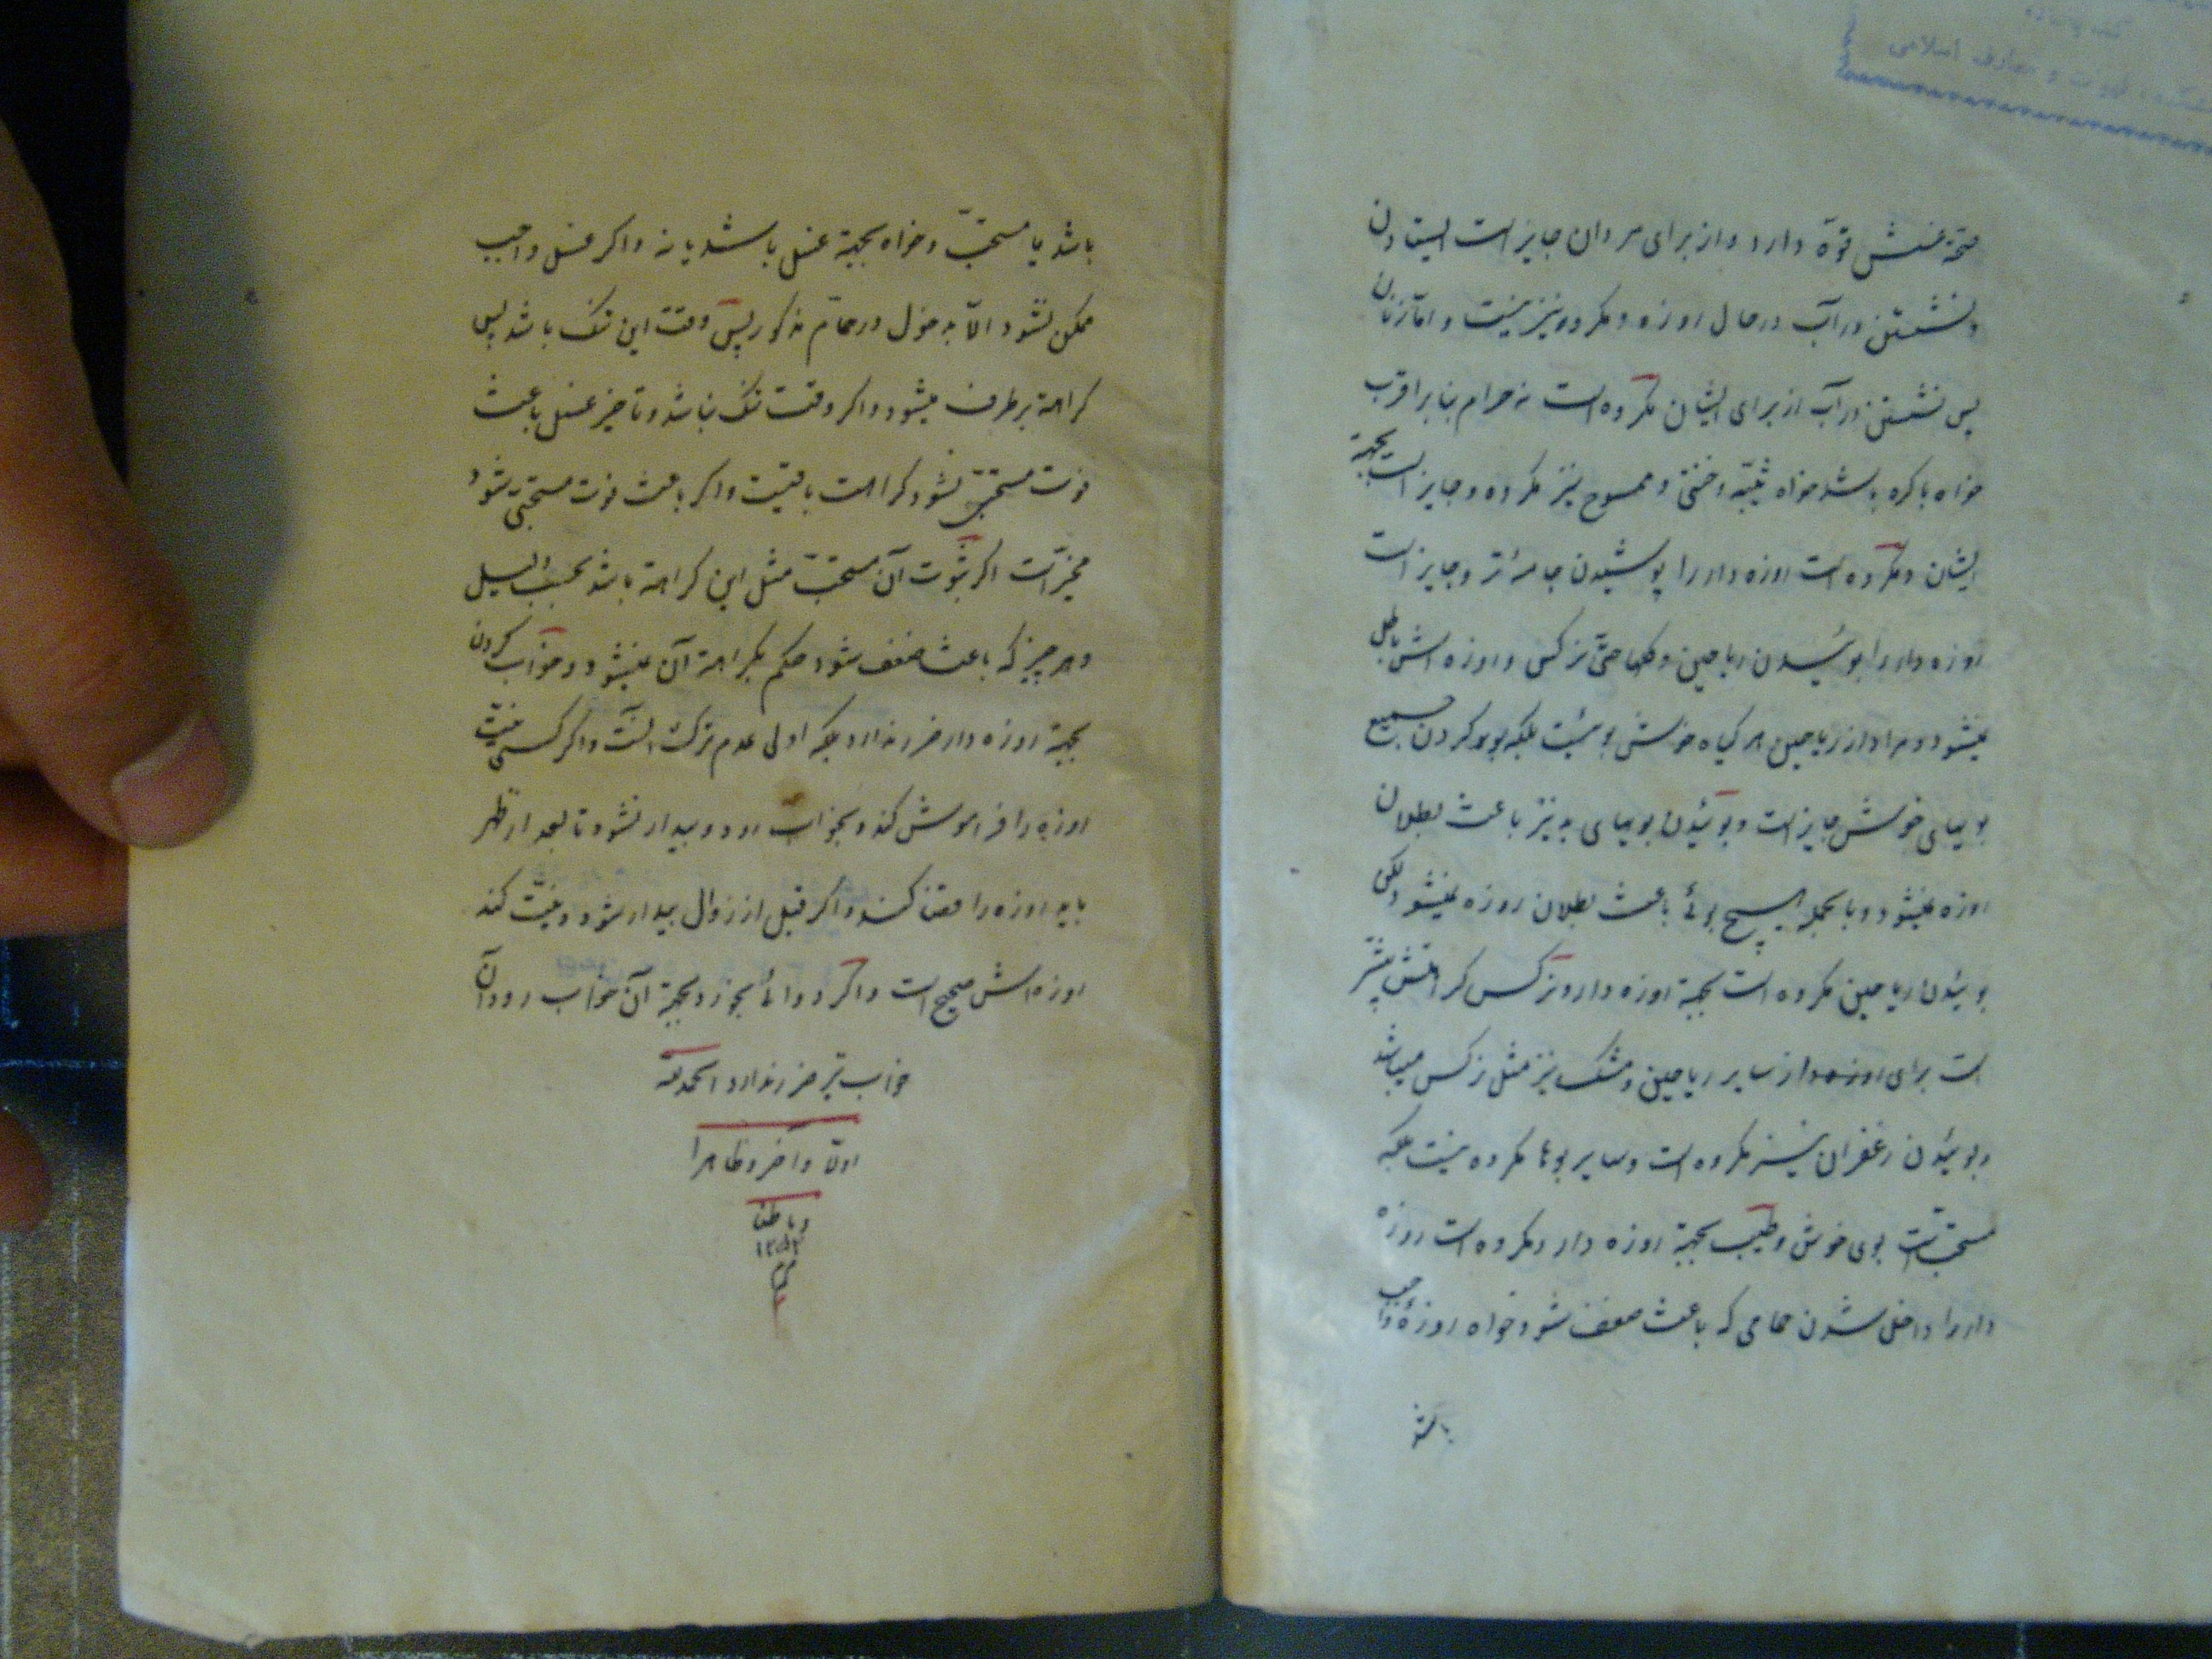 صحّة غسلش قوّة دارد و از برای مردان جایز است ایستادن
و نشستن در آب در حال روزه و مکروه نیز نیست و امّا زنان
پس نشستن در آب از برای ایشان مکروه است نه حرام بنا بر اقرب
خواه باکره باشد خواه ثیّبه و خنثی و ممسوح نیز مکروه و جایز است بجهة
ایشان و مکروه است روزه دار را پوشیدن جامهٔ تر و جایز است
روزه دار را بوئیدن ریاحین و گلها حتّی نرگس و روزه اش باطل
نمیشود و مراد از ریاحین هر گیاه خوش بوئیست بلکه بو کردن جمیع
بویهای خوش جایز است و بوئیدن بویهای بد نیز باعث بطلان
روزه نمیشود و بالجمله هیچ بوئی باعث بطلان روزه نمیشود لکن
بوئیدن ریاحین مکروه است بجهة روزه دار و نرگس کراهتش بیشتر
است برای روزه دار از سایر ریاحین و مشک نیز مثل نرگس میباشد
و بوئیدن زعفران نیز مکروه است و سایر بوها مکروه نیست بلکه
مستحبّ است بوی خوش و طیب بجهة روزه دار و مکروه است روزه
دار را داخل شدن حمامی که باعث ضعف شود خواه روزهٔ واجب
باشد
باشد یا مستحبّ و خواه بجهة غسل باشد یا نه و اگر غسل واجب
ممکن نشود الّا بدخول در حمّام مذکور پس وقت این تنگ باشد پس
کراهة بر طرف میشود و اگر وقت تنگ نباشد و تاخیر غسل باعث
فوت مستحبّی نشود کراهت باقیست و اگر باعث فوت مستحبّی شود
مخیّر است اگر ثبوت آن مستحبّ مثل این کراهة باشد بحسب دلیل
و هر چیز که باعث ضعف شود حکم بکراهة آن نمیشود و خواب کردن
بجهة روزه دار ضرر ندارد بلکه اولی عدم ترک است و اگر کسی نیّت
روزه را فراموش کند و بخواب رود و بیدار نشود تا بعد از ظهر
باید روزه را قضا کند و اگر قبل از زوال بیدار شود و نیّت کند
روزه اش صحیح است و اگر دوائی بخورد و بجهة آن خواب رود آن
خواب نیز ضرر ندارد الحمد لله
اولا و آخر و ظاهرا
و باطنا